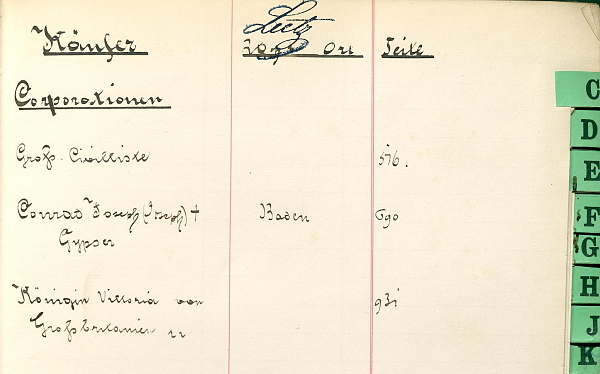 Käufer
Ort
Seite
Corporationen
Groß. Civilliste
576.
Conrad Josef (Joseph) +
Baden
690
Gypser
Königin Victoria von
931
Großbritanien
C
D
E
F
G
H
J
K